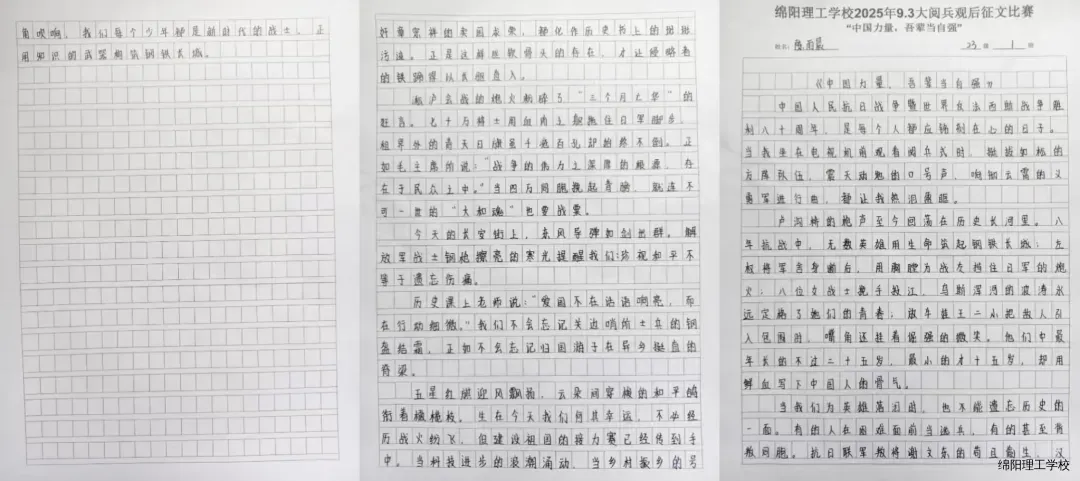 绵阳理工学校2025年9.3大阅兵观后征文比赛
“中国力量,吾辈当自强”
姓名: 班 1
《中国力量,吾辈当自强》
中国人民抗日战争暨世界反法西斯战争胜
利八十周年,是每个人都应铸刻在心的日子。
当我坐在电视机前观看阅兵式时,挺拔如松的
方阵队伍,震天动地的口号声,响彻云霄的义
勇军进行曲,都让我热泪盈眶。
卢沟桥的枪声至今回荡在历史长河里。八
年抗战中,无数英雄用生命筑起钢铁长城:左
权将军舍身断后,用胸膛为战友挡住日军的炮
火;八位女战士挽手投江,乌斯浑河的波涛永
远定格了她们的青春;放牛娃王二小把敌人引
入包围时,嘴角还挂着倔强的微笑。他们中最
年长的不过二十五岁,最小的才十五岁,却用
鲜血写下中国人的骨气。
当我们为英雄落泪时,也不能遗忘历史的
一面。有的人在困难面前当逃兵,有的甚至背
叛同胞。抗日联军叛将谢文东的苟且偷生,汉
奸 的卖国求荣,都化作历史书上的
污渍。正是这群些软骨头的存在,才让侵略者
的铁蹄得以长驱直入。
淞沪会战的炮火粉碎了“三个月亡华”的
狂言。七十万将士用血肉之躯拖住日军脚步,
租界外的青天白日旗虽千疮百孔却始终不倒。正
如毛主席所说:“战争的伟力之深厚的根源,存
在于民众之中。”当四万万同胞挽起臂膀,就连不
可一世的“大和魂”也要战栗。
今天的长安街上,东风导弹如剑出鞘。解
放军战士钢枪擦亮的寒光提醒我们:珍视和平不
等于遗忘伤痛。
历史课上老师说:“爱国不在话语响亮,而
在行动细微。”我们不会忘记戍边哨所士兵的钢
盔结霜,正如不会忘记归国游子在异乡挺直的
脊梁。
五星红旗迎风飘扬,云朵间穿梭的和平鸽
衔着橄榄枝。生在今天我们何其幸运,不必经
历战火纷飞,但建设祖国的接力赛已经传到手
中。当科技进步的浪潮涌动,当乡村振兴的号
角吹响,我们每个少年都是新时代的战士,正
用知识的武器构筑钢铁长城。
绵阳理工学校